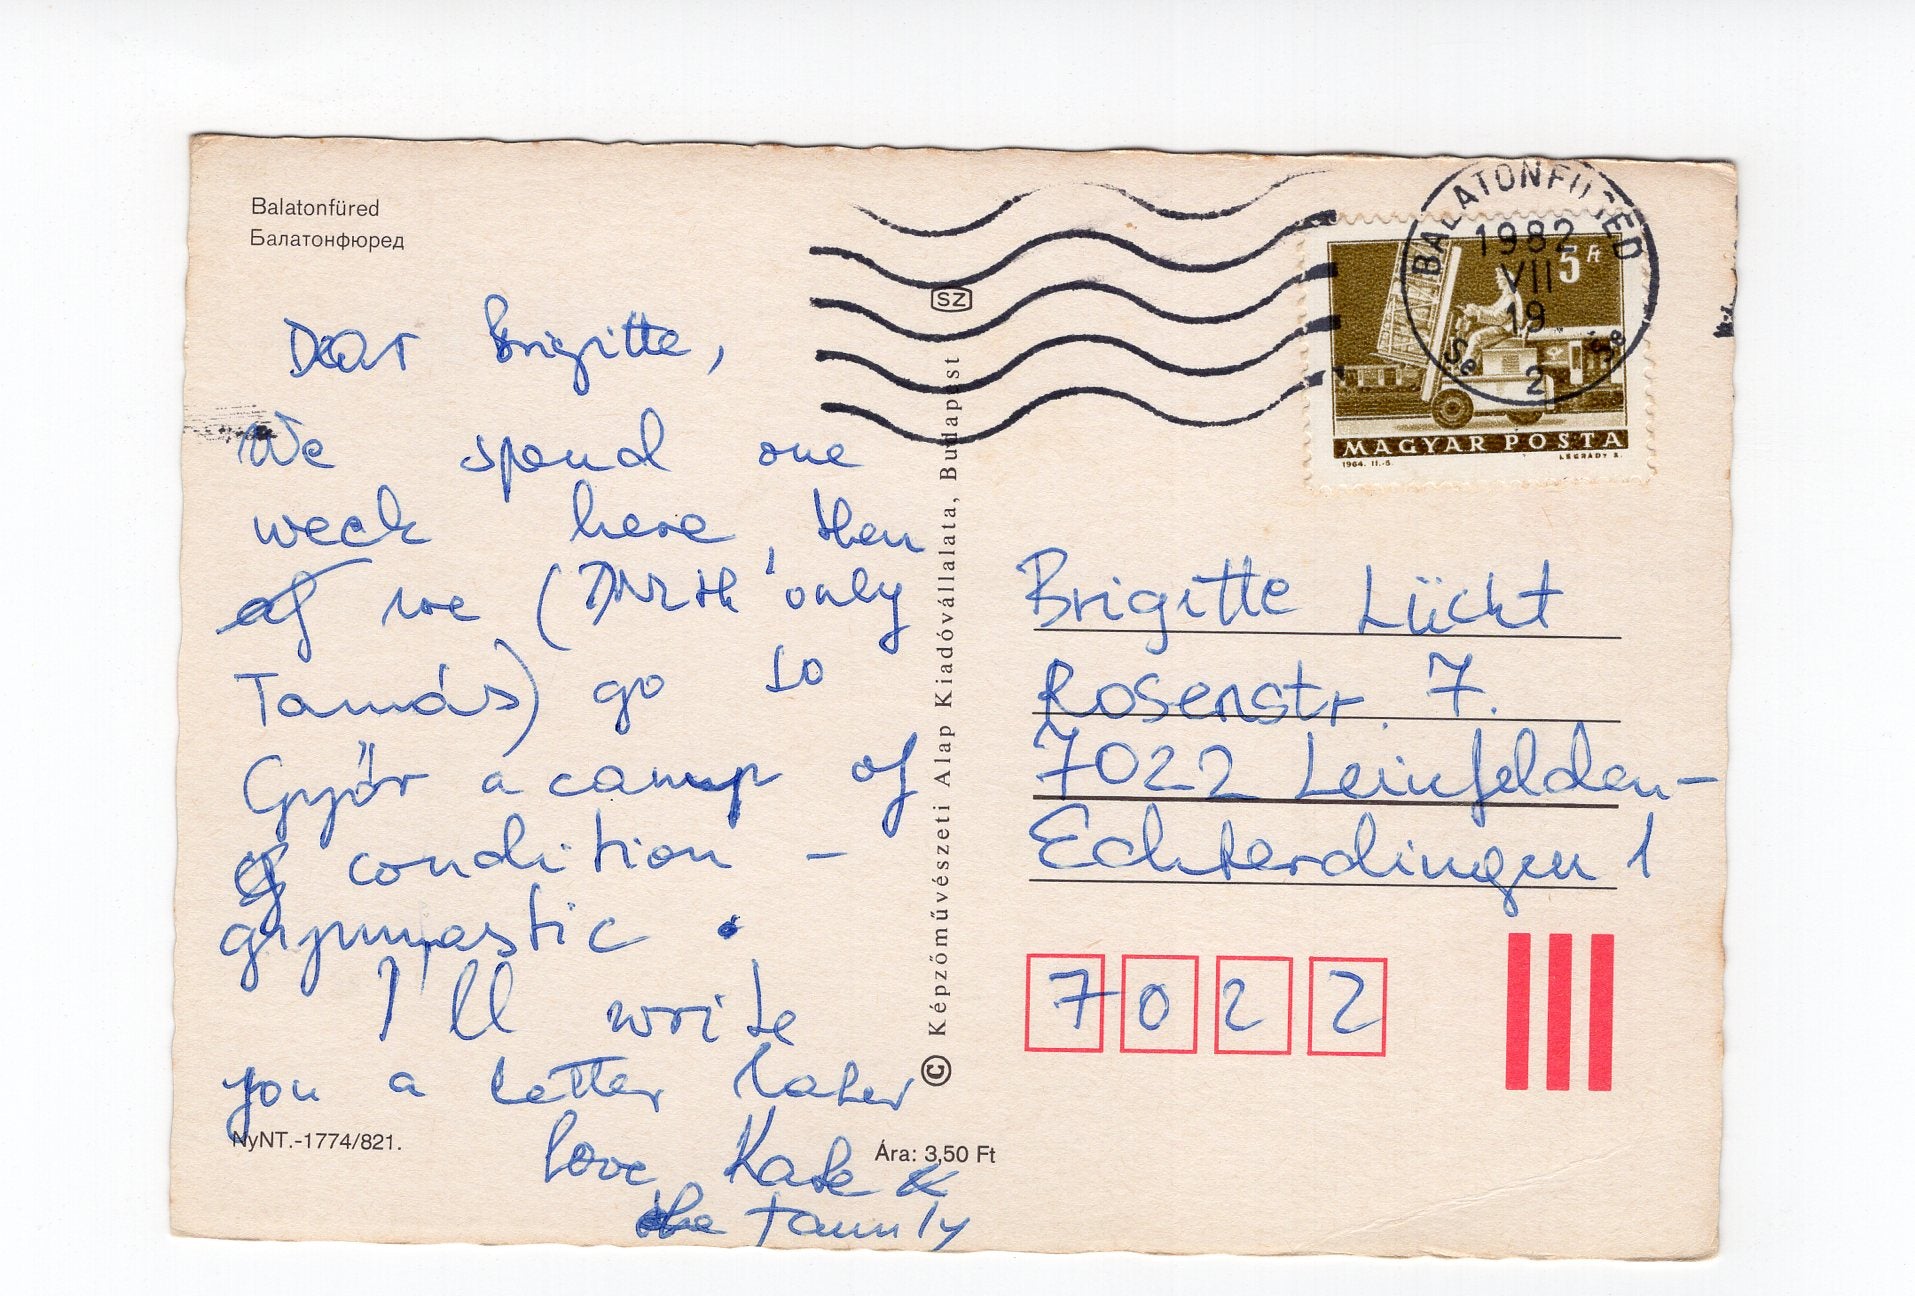 Balatonfüred
Балатонфюред
Dear Brigitte,
We spend one
week here, then
we (with only
Tamás) go to
Győr a camp of
condition -
gymnastic.
I'll write
you a letter later
love Kate &
the family
NyNT.-1774/821.
Ára: 3,50 Ft
SZ
© Képzőművészeti Alap Kiadóvállalata, Budapest
BALATONFÜRED
1982
VII
19
2
5 Ft
MAGYAR POSTA
1964. II.-5.
LÉGRÁDY S.
Brigitte Lücht
Rosenstr. 7.
7022 Leinfelden-
Echterdingen 1
7022